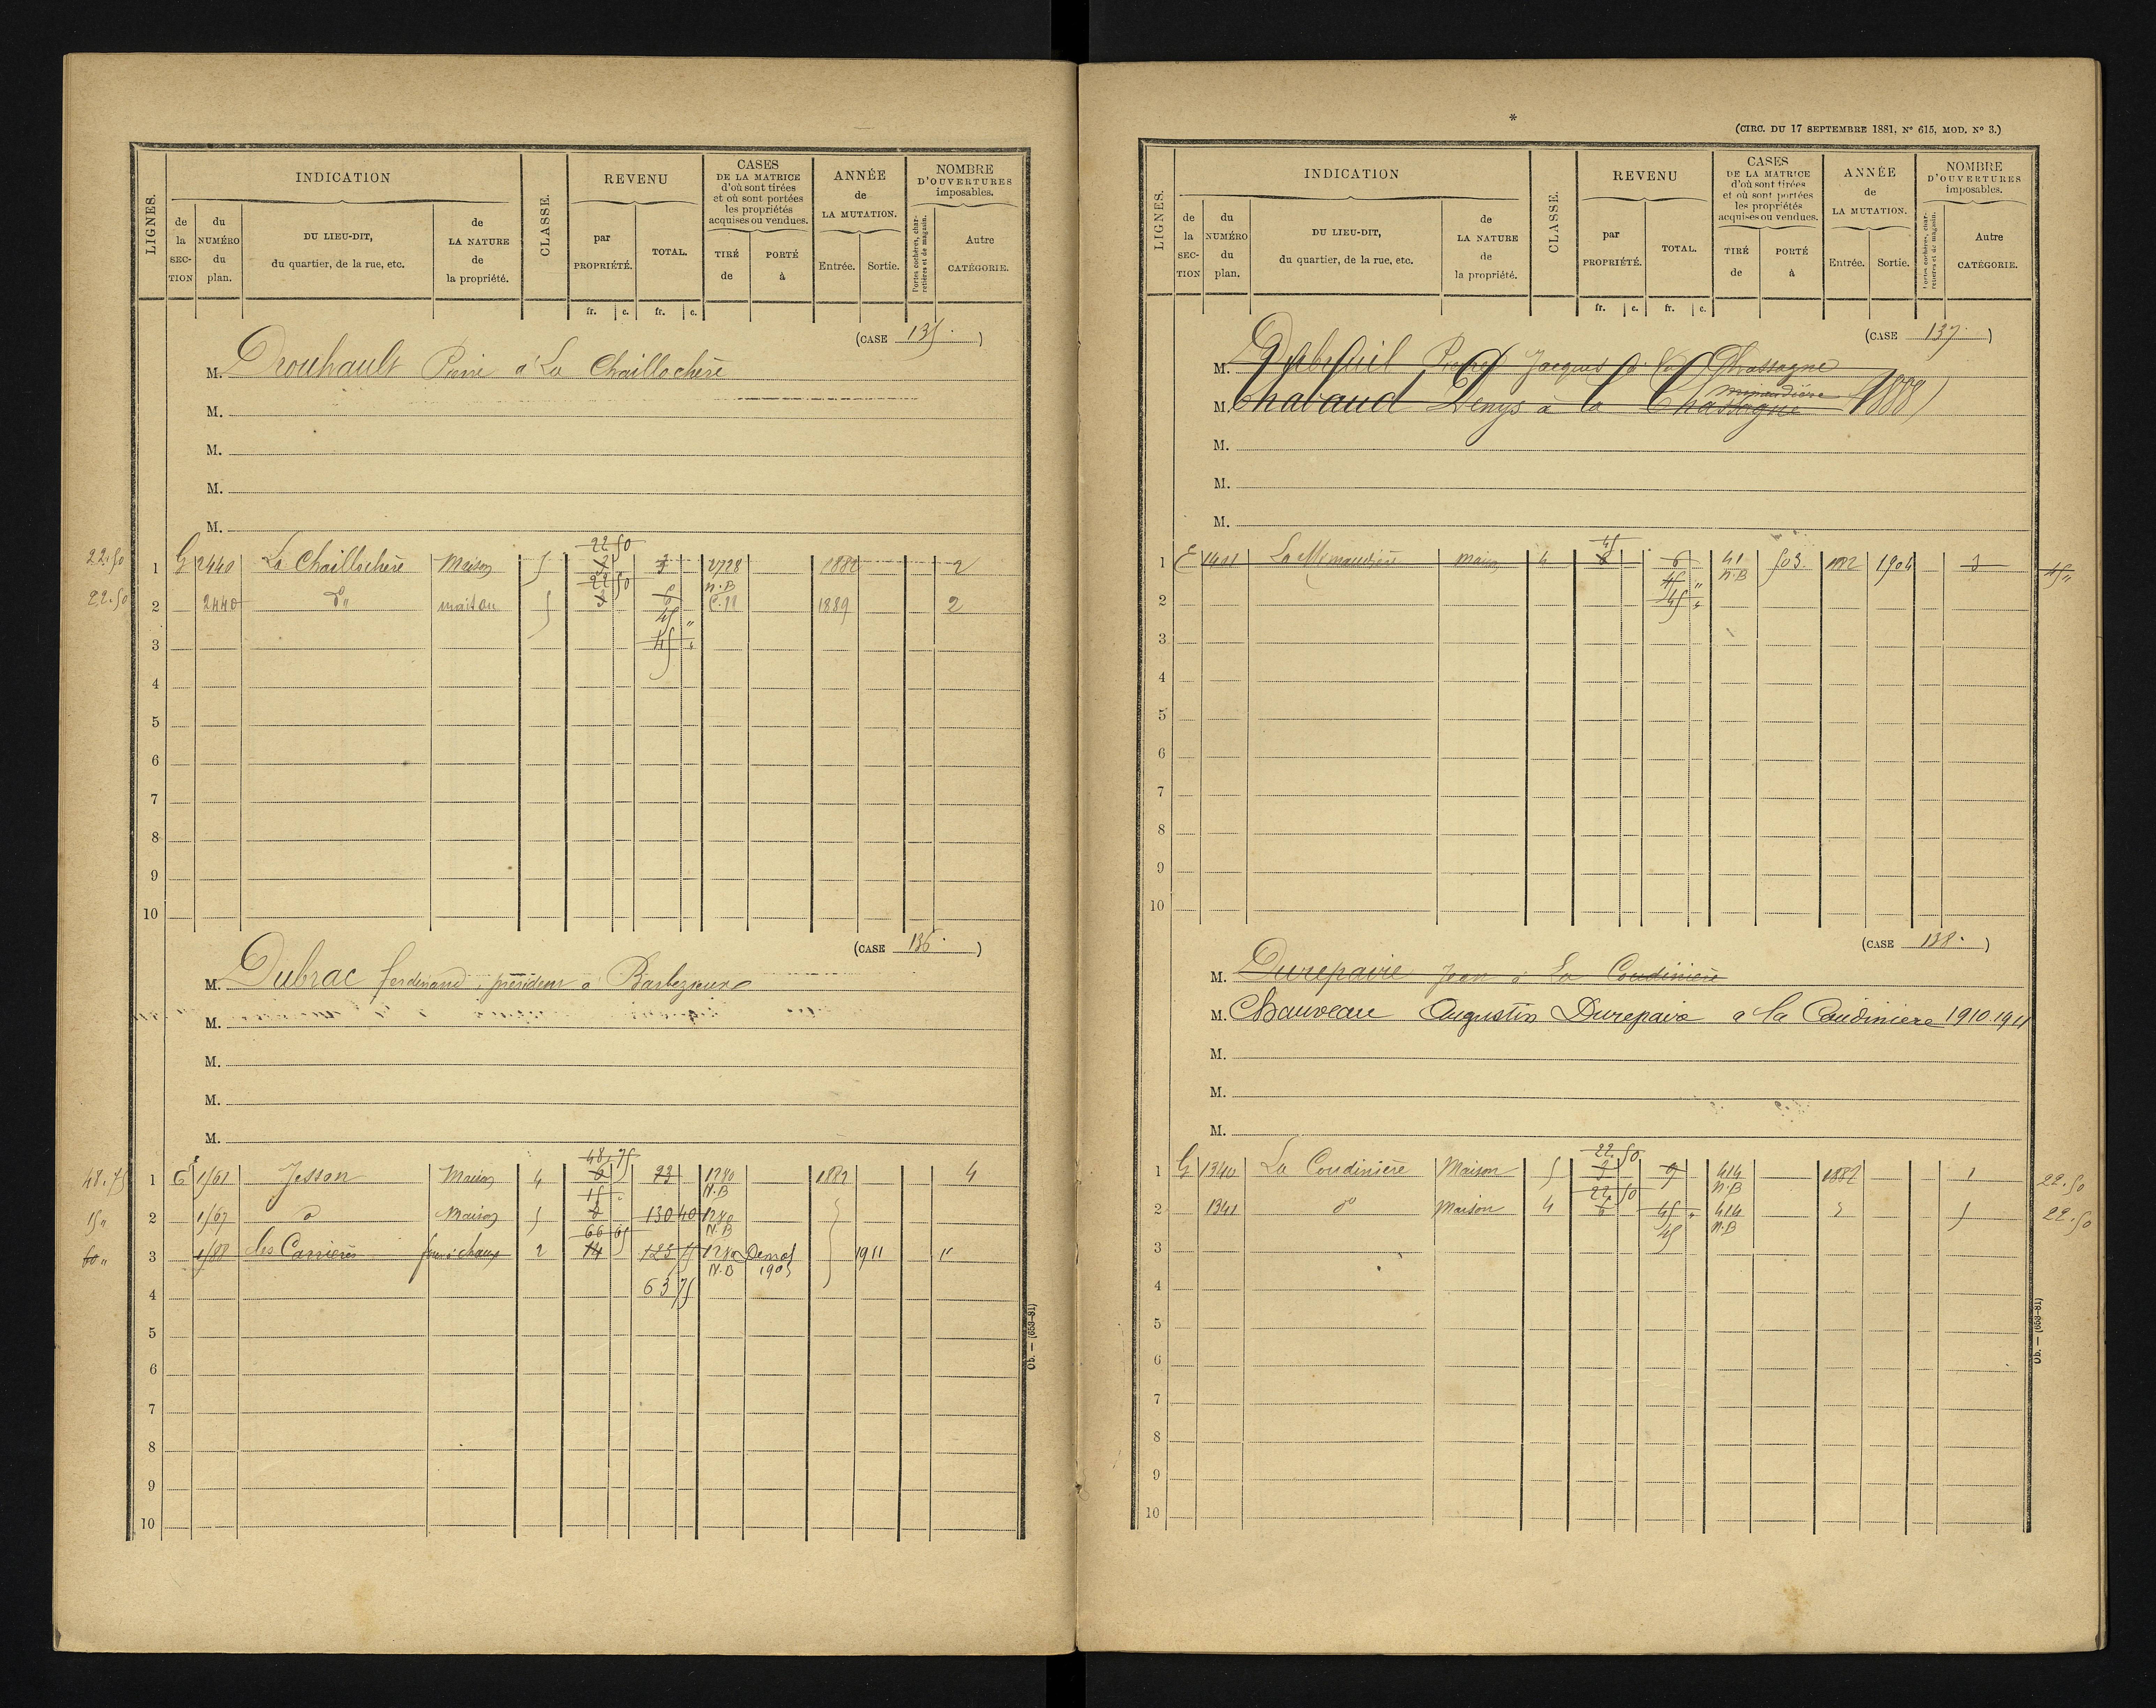 LIGNES.
INDICATION
CLASSE.
REVENU
CASES
DE LA MATRICE
d'où sont tirées
et où sont portées
les propriétés
acquises ou vendues.
ANNÉE
de
LA MUTATION.
NOMBRE
D'OUVERTURES
imposables.
de la SECTION
du NUMÉRO du plan.
DU LIEU-DIT,
du quartier, de la rue, etc.
de LA NATURE de la propriété.
par PROPRIÉTÉ.
TOTAL.
TIRÉ de
PORTÉ à
Entrée.
Sortie.
Portes cochères, charretières et de magasin.
Autre CATÉGORIE.
fr. c. fr. c.
(CASE 135.)
M. Drouhault Pierre à La Chaillochère
M.
M.
M.
M.
22 50
22.50 1 G 2440 La Chaillochère Maison 5 3 3 2728 1882 2
22 50 n.B
22.50 2 2440 do maison 5 6 1889 2
45 "
3 45 "
4
5
6
7
8
9
10
(CASE 136.)
M. Dubrac ferdinand, président à Barbezieux
M.
M.
M.
M.
48 75
48.75 1 E 1561 Jesson Maison 4 23 1280 1882 4
15 N.B
15 " 2 1567 do Maison 5 130 40 1280
66 65 N.B
60 " 3 1588 les Carrières four à chaux 2 14 123 75 1280 Demol 1911 "
N.B 1905
4 63 75
5
6
7
8
9
10
Ob. — (653-81)
*
(CIRC. DU 17 SEPTEMBRE 1881, N° 615, MOD. N° 3.)
LIGNES.
INDICATION
CLASSE.
REVENU
CASES
DE LA MATRICE
d'où sont tirées
et où sont portées
les propriétés
acquises ou vendues.
ANNÉE
de
LA MUTATION.
NOMBRE
D'OUVERTURES
imposables.
de la SECTION
du NUMÉRO du plan.
DU LIEU-DIT,
du quartier, de la rue, etc.
de LA NATURE de la propriété.
par PROPRIÉTÉ.
TOTAL.
TIRÉ de
PORTÉ à
Entrée.
Sortie.
Portes cochères, charretières et de magasin.
Autre CATÉGORIE.
fr. c. fr. c.
(CASE 137.)
M. Dubreuil Pierre Jacques à la Chassagne
M. Chabaud Denys à la Chassagne (1888)
M.
M.
M.
45
1 E maison 4 6 41 503. 1882 1904 3 45 "
45 " n.B
2 45 "
3
4
5
6
7
8
9
10
(CASE 138.)
M. Durepaire Jean à La Coudinière
M. Chauveau Augustin Durepaire a la Coudiniere 1910.1911
M.
M.
M.
22.50
1 G 1340 La Coudinière Maison 5 3 9 414 1882 1 22.50
22.50 n.B
2 1341 do Maison 4 6 45 " 414 22.50
45 n.B
3
4
5
6
7
8
9
10
Ob. — (653-81)